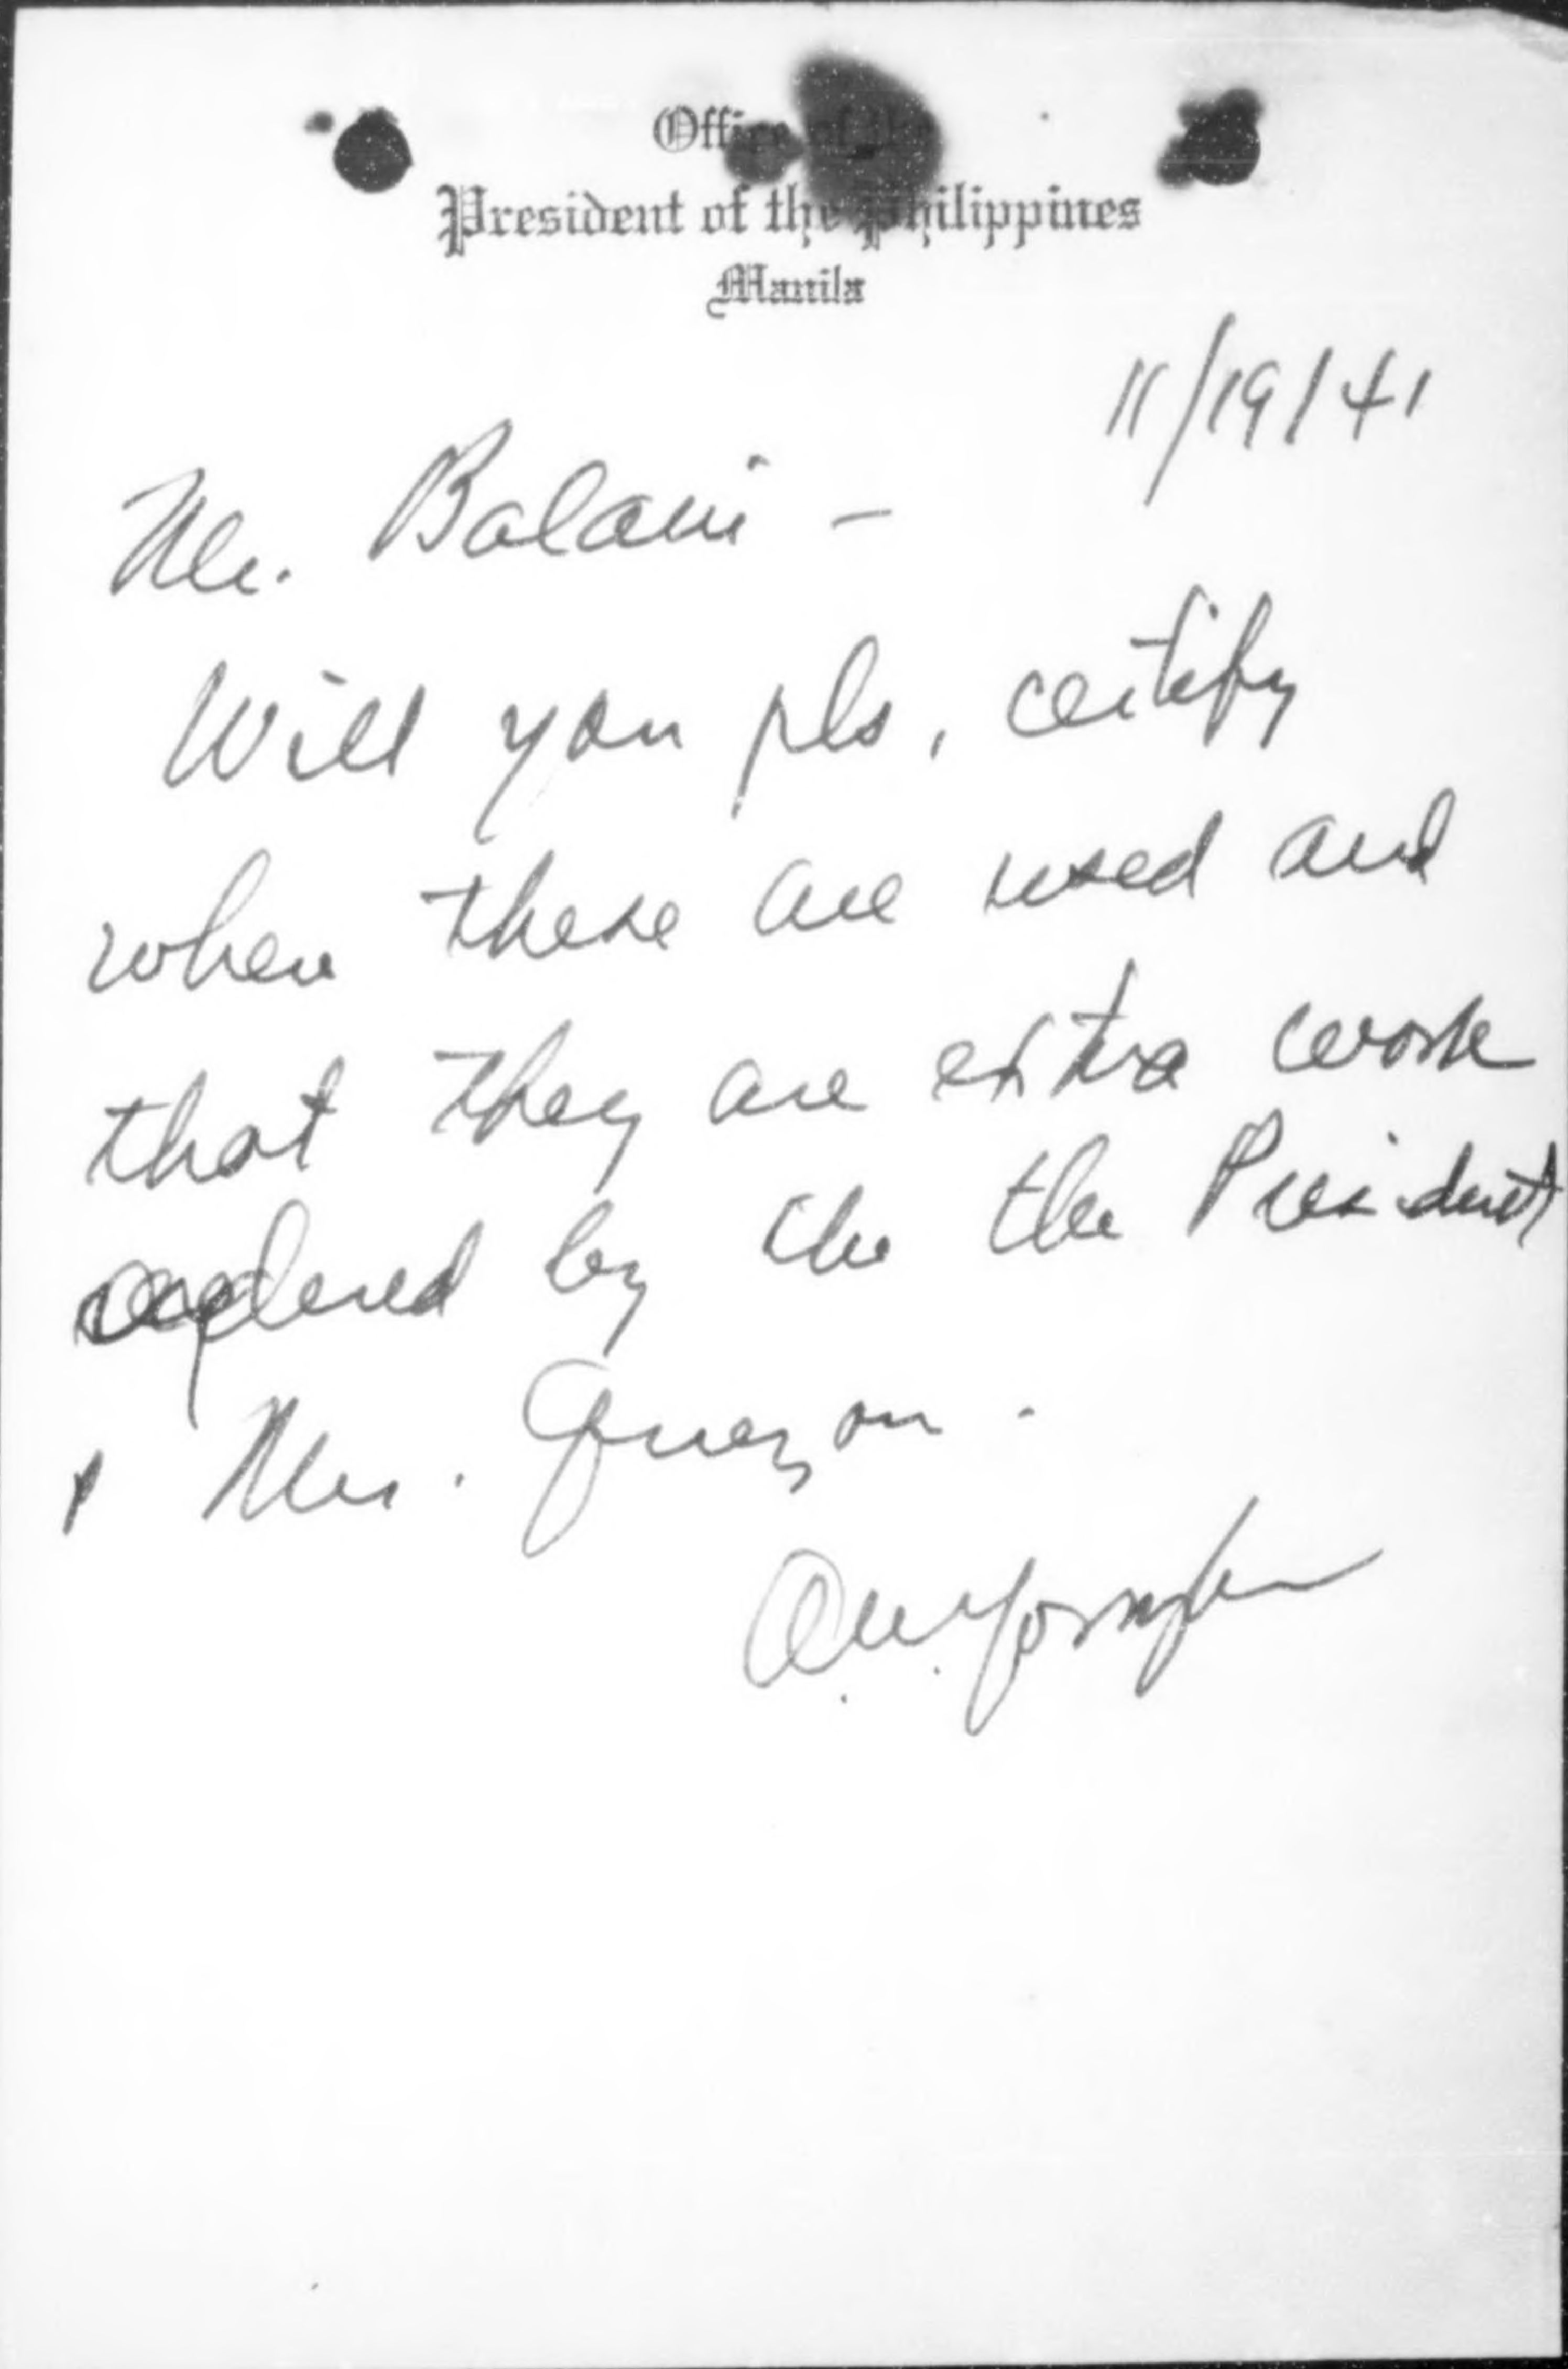 Office of the
President of the Philippines
Manila
11/19/41
Mr.
Will you pls, certify
when these are used and
that they are extra work
ordered by the the President
Mrs. Quezon.